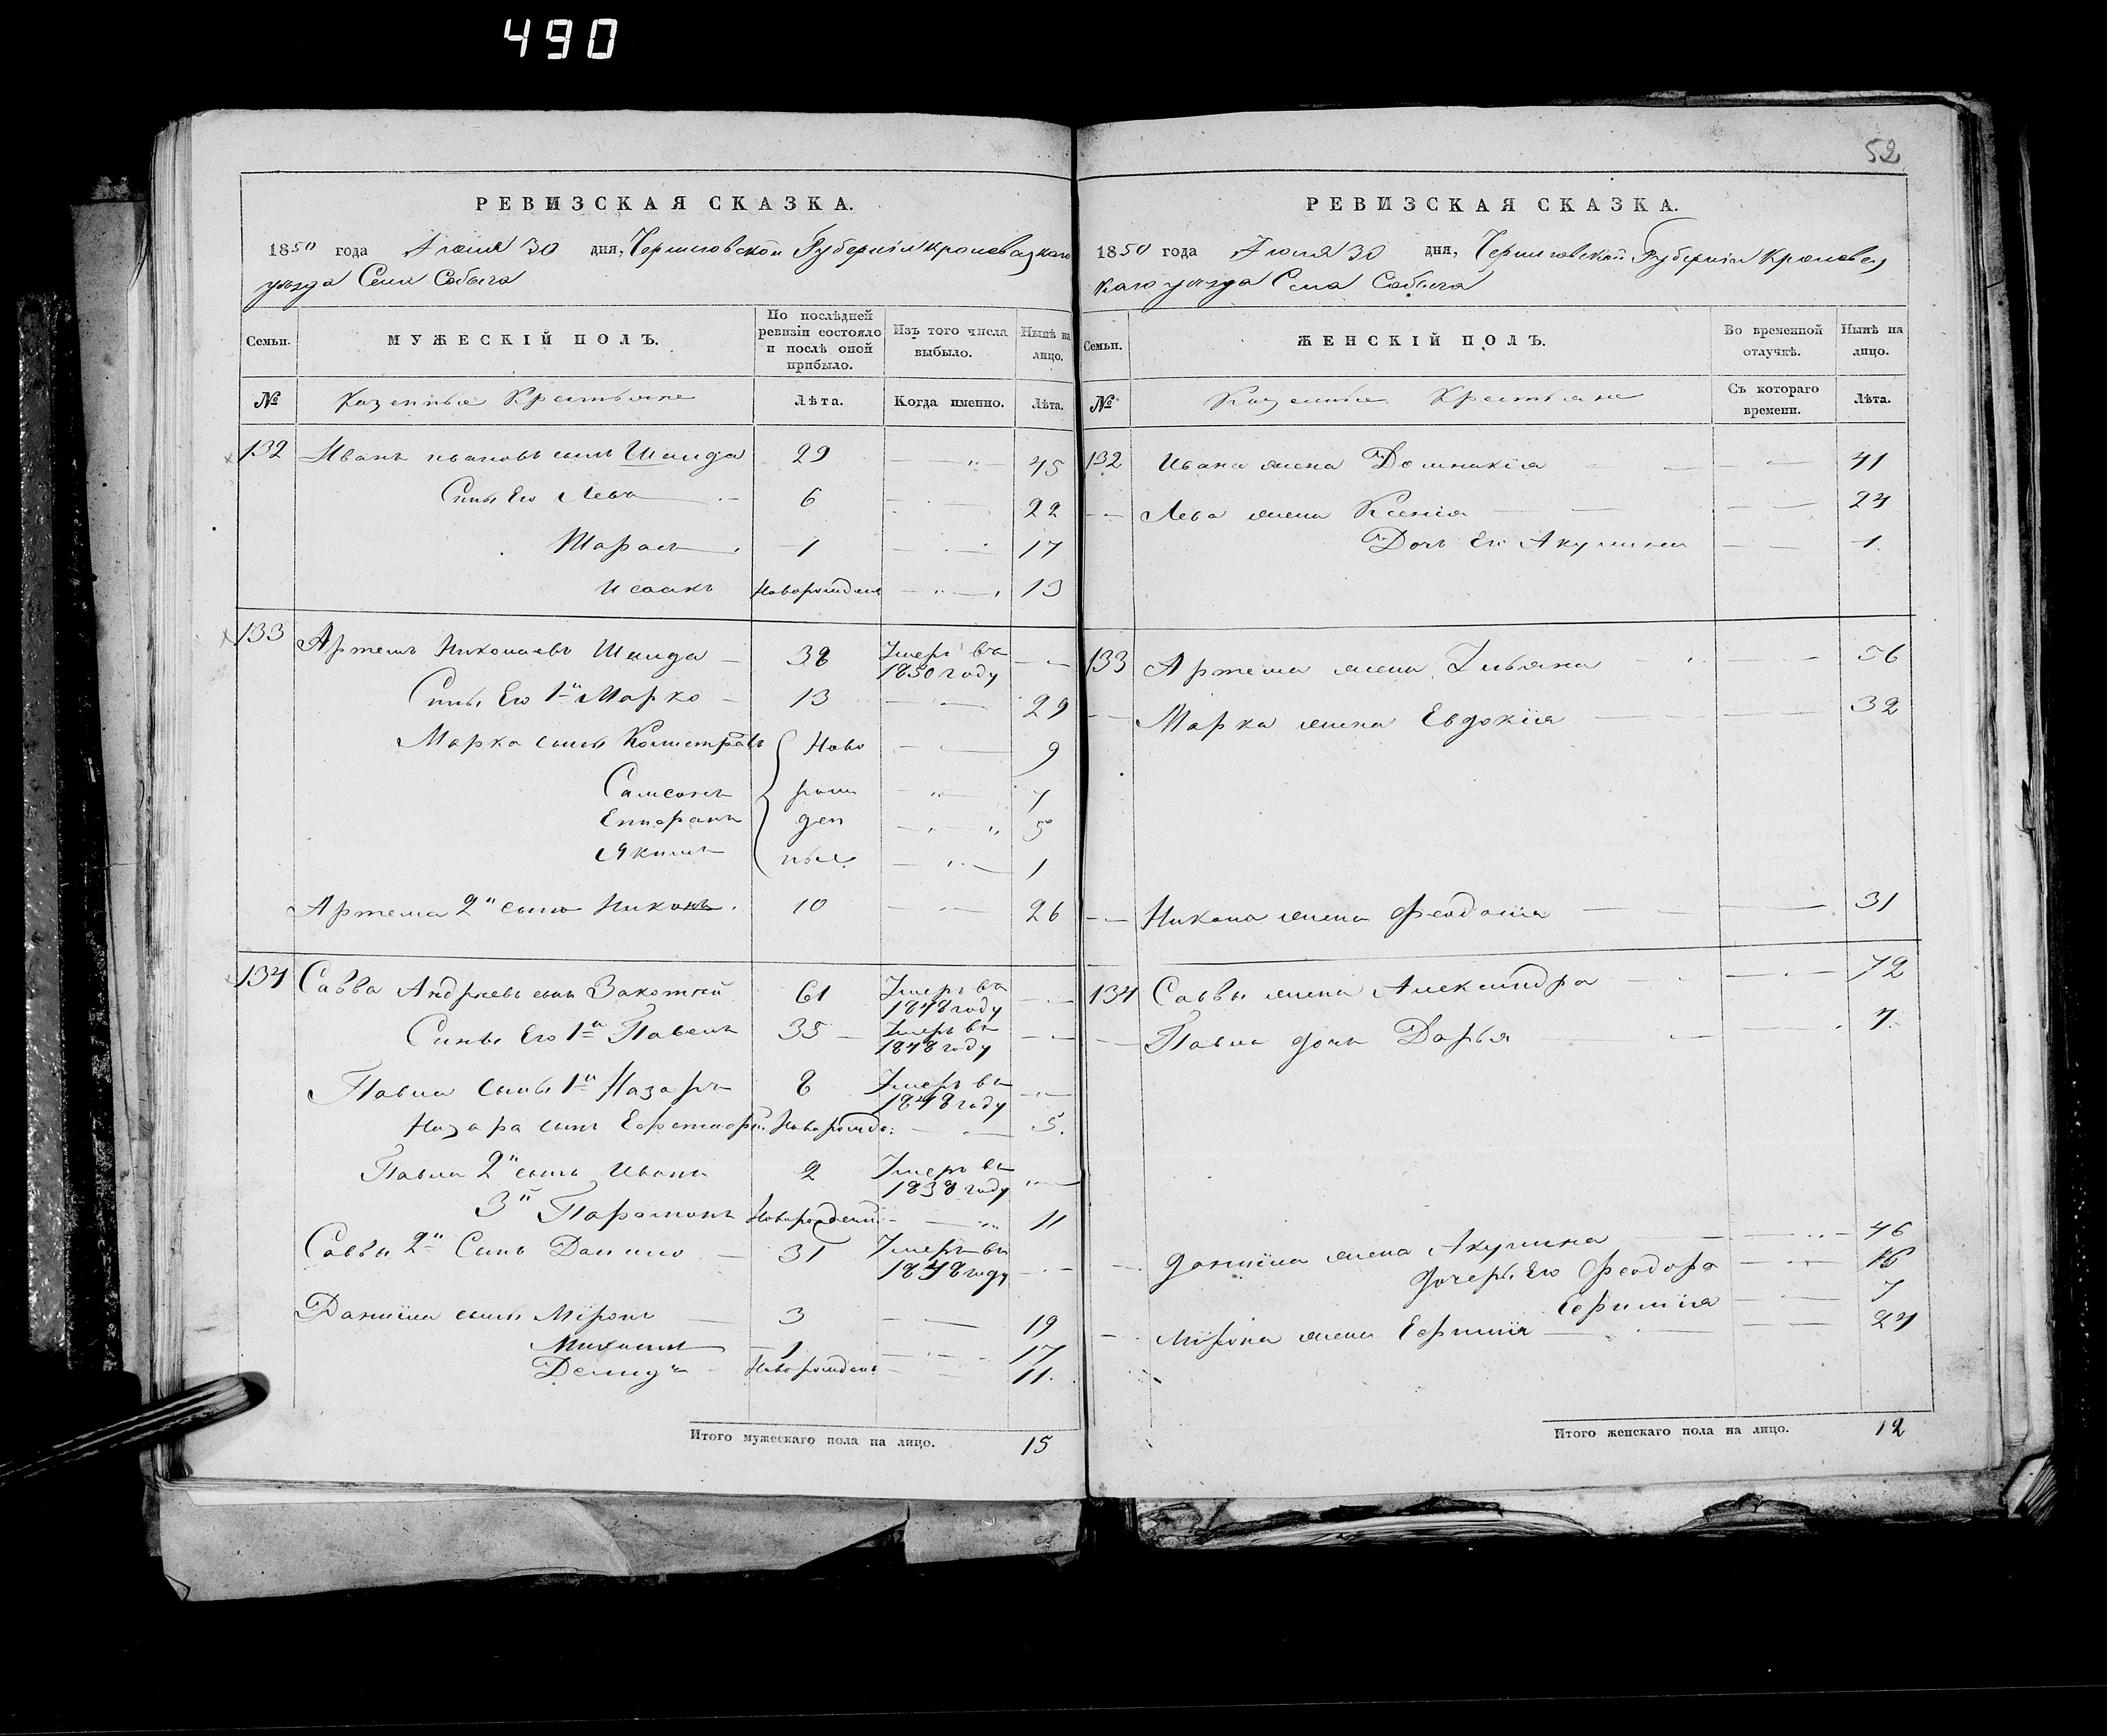 490
52
РЕВИЗСКАЯ СКАЗКА.
1850 года Июля 30 дня, Черниговской Губерніи Кролевецкаго
уезда Села Собыча
Семьи.
МУЖЕСКІЙ ПОЛЪ.
По послѣдней ревизіи состояло и послѣ оной прибыло.
Изъ того числа выбыло.
Нынѣ на лицо.
№
Казенные Крестьяне
Лѣта.
Когда именно.
Лѣта.
132 Иванъ ивановъ сынъ 29 — 45
Сины Его Левъ 6 — 22
Тарасъ 1 — 17
Исаакъ Новорожденъ — 13
133 Артемъ Николаевъ 38 Умеръ въ 1850 году —
Сины Его 1й Марко 13 — 29
Марка сыны Ново — 9
Самсонъ рож — 7
ден — 5
Якимъ ные — 1
Артема 2й сынъ Никонъ 10 — 26
134 Савва Андреевъ сынъ 61 Умеръ въ 1848 году —
Сины Его 1й Павелъ 35 Умеръ въ 1848 году —
Павла сыны 1й Назаръ 8 Умеръ въ 1848 году —
Назара сынъ Новорожде: — 5.
Павла 2й сынъ Иванъ 2 Умеръ въ 1838 году —
3й Парамонъ Новорожден: — 11
Саввы 2й Сынъ Данило 31 Умеръ въ 1848 году —
Даниила сыны Міронъ 3 — 19
Михаилъ 1 — 17
Демидъ Новорожденъ — 11.
Итого мужескаго пола на лицо. 15
РЕВИЗСКАЯ СКАЗКА.
1850 года Июля 30 дня, Черниговской Губерніи Кролевец
каго уезда Села Собыча
Семьи.
ЖЕНСКІЙ ПОЛЪ.
Во временной отлучкѣ.
Нынѣ на лицо.
№
Казенные Крестьяне
Съ котораго времени.
Лѣта.
132 Ивана жена Домникія — 41
Лева жена Ксенія — 24
Дочь Его Акулина — 1.
133 Артема жена Ульяна — 56
Марка жена Евдокія — 32
Никона жена Феодосія — 31
134 Саввы жена Александра — 72
Павла дочь Дарья — 7.
Даниила жена Акулина — 46
дочери Его Феодора — 16
Ефимія — 7
Мірона жена Ефимія — 24
Итого женскаго пола на лицо. 12